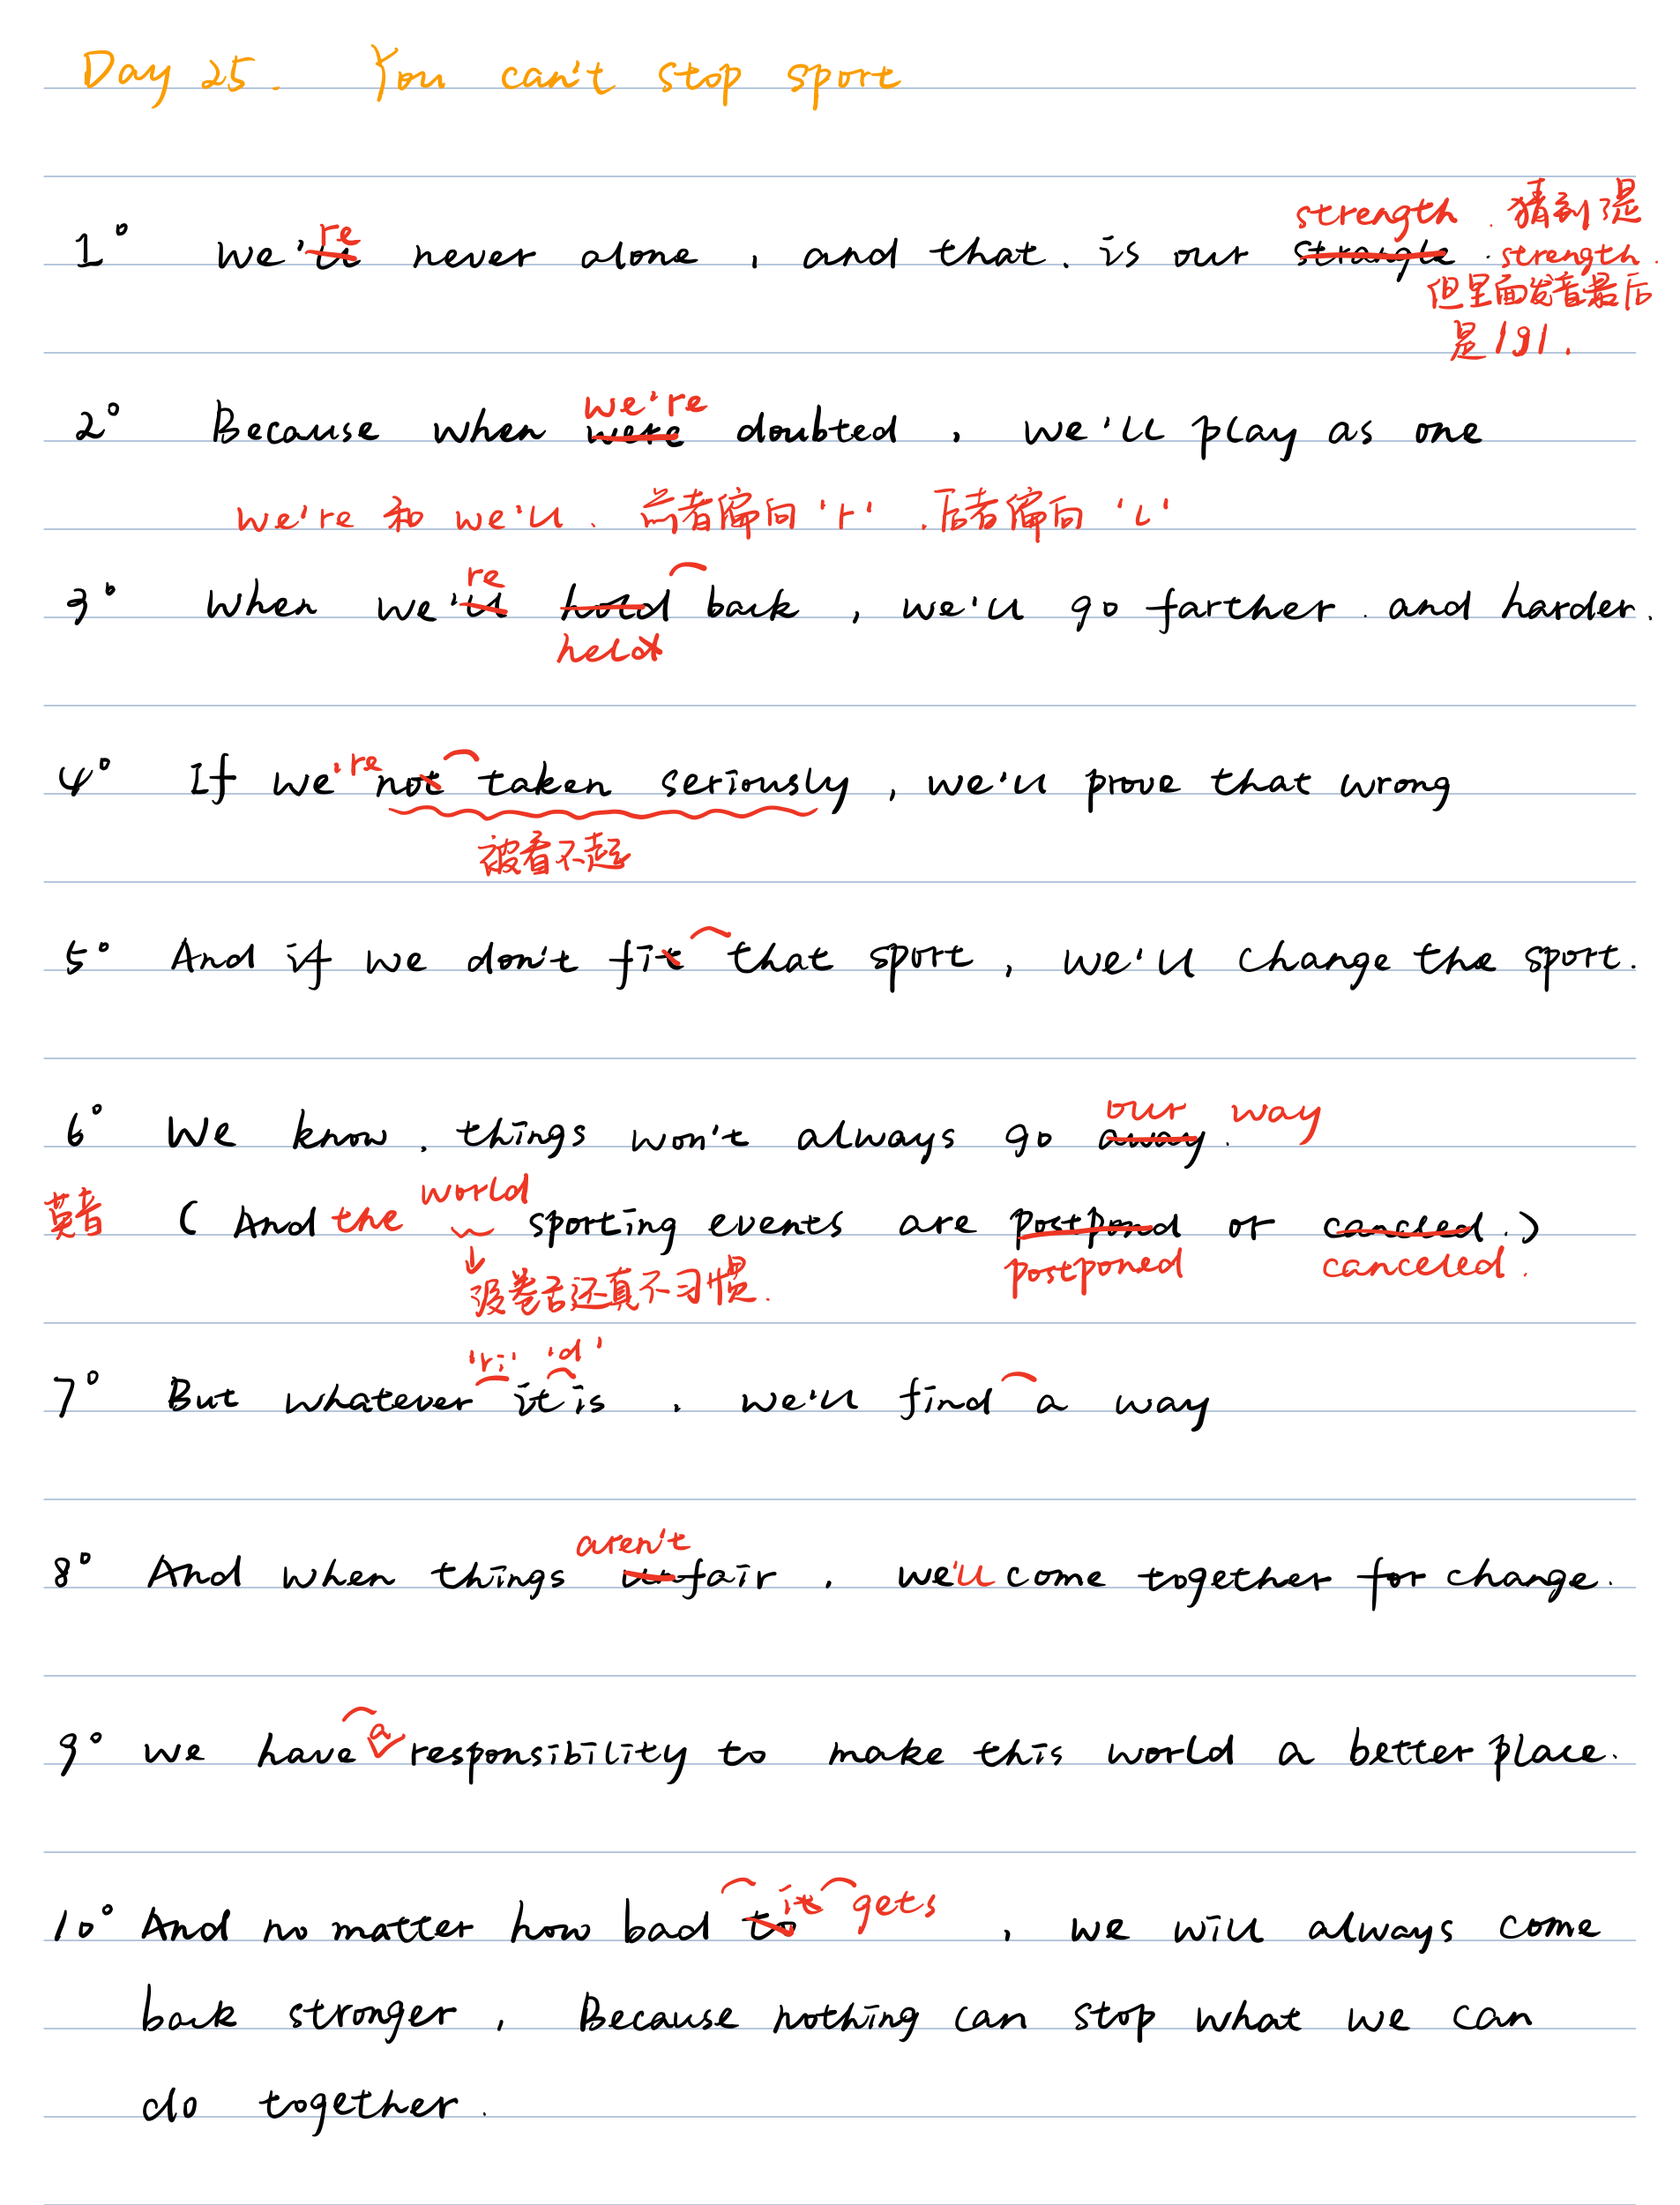 Day 25. You can't stop sport
strength. 猜到是
1° We'll re never alone, and that is our strangle. strength.
但里面发音最后
是/g/.
we're
2° Because when were doubted, we'll play as one
we're 和 we'll. 前者偏向'r', 后者偏向'l'
re
3° When we'll hold back, we'll go farther and harder.
held
4° If we're not taken seriously, we'll prove that wrong
被看不起
5° And if we don't fit that sport, we'll change the sport.
our way
6° We know, things won't always go away.
world
英音 (And the sporting events are postpond or cancled.)
postponed canceled.
没卷舌还真不习惯.
'ri' 'd'
7° But whatever it is, we'll find a way
aren't
8° And when things unfair, we'll come together for change.
9° We have a responsibility to make this world a better place.
it gets
10° And no matter how bad to, we will always come
back stronger, Because nothing can stop what we can
do together.